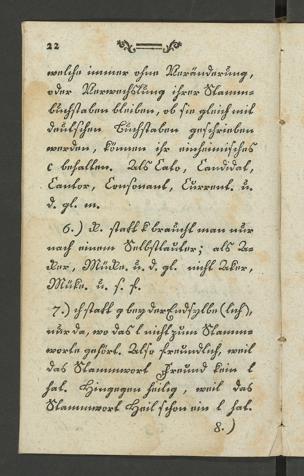 22
welche immer ohne Veränderung,
oder Verwechslung ihrer Stamm=
buchstaben bleiben, ob sie gleich mit
deutschen Buchstaben geschrieben
werden, können ihr einheimisches
c behalten. Als Cato, Candidat,
Cantor, Consonant, Current. u.
d. gl. m.
6.) k. statt k braucht man nur
nach einem Selbstlauter; als A=
cker, Mücke. u. d. gl. nicht Aker,
Müke. u. s. f.
7.) ch statt g bey der Endsylbe (lich),
nur da, wo das l nicht zum Stamm=
worte gehört. Also freundlich, weil
das Stammwort Freund kein l
hat. Hingegen heilig, weil das
Stammwort Heil schon ein l hat.
8.)